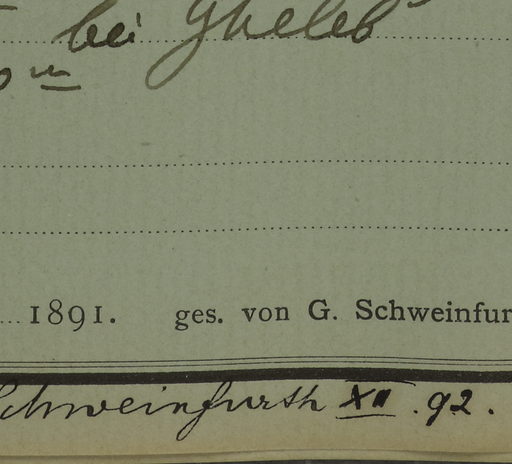 bei Gheleb
m
1891. ges. von G. Schweinfur
Schweinfurth XII. 92.